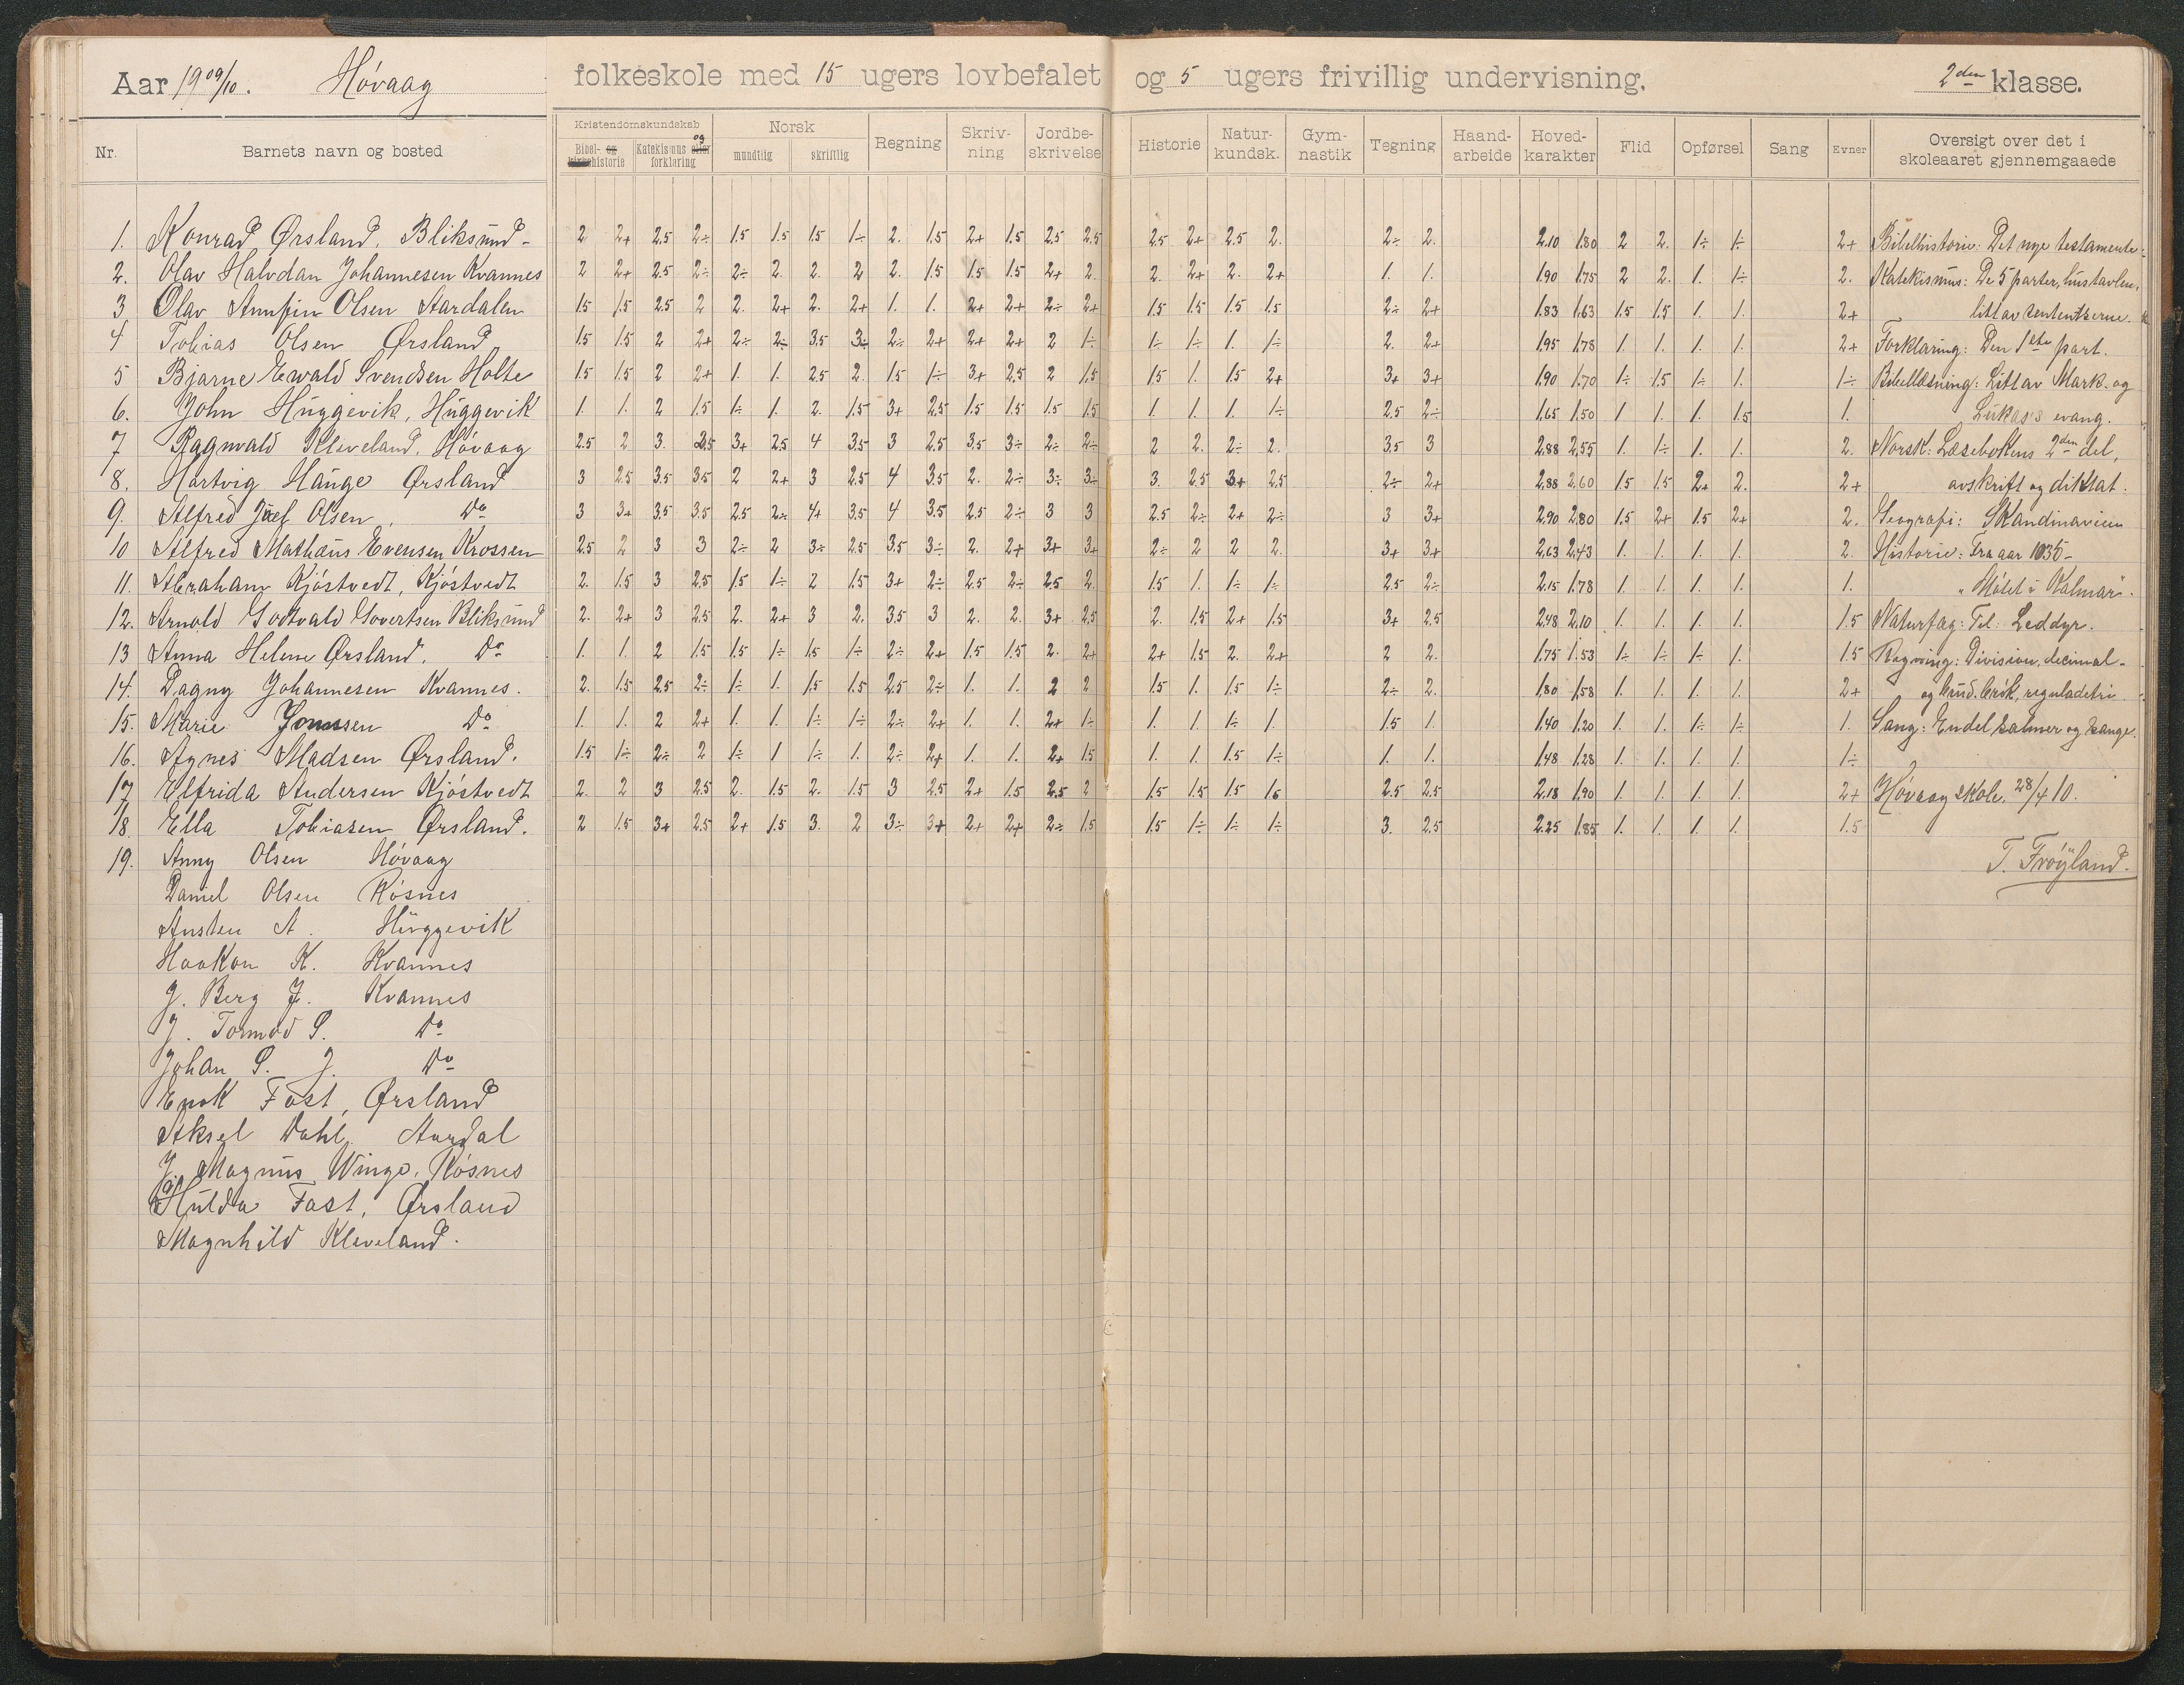 Aar 1909/10. Høvaag folkeskole med 15 ugers lovbefalet og 5 ugers frivillig undervisning. 2den klasse.
Nr. Barnets navn og bosted Kristendomskundskab Bibel- og kirkehistorie Katekismus eller og forklaring Norsk mundtlig skriftlig Regning Skriv-ning Jordbe-skrivelse Historie Natur-kundsk. Gym-nastik Tegning Haand-arbeide Hoved-karakter Flid Opførsel Sang Evner Oversigt over det i skoleaaret gjennemgaaede
1. Konrad Ørsland, Bliksund- 2 2+ 2.5 2÷ 1.5 1.5 1.5 1÷ 2. 1.5 2+ 1.5 2.5 2.5 2.5 2+ 2.5 2. 2÷ 2. 2.10 1.80 2 2. 1÷ 1÷ 2+ Bibelhistorie: Det nye testamente.
2. Olav Halvdan Johannesen Kvannes 2 2+ 2.5 2÷ 2÷ 2. 2. 2 2. 1.5 1.5 1.5 2+ 2. 2. 2+ 2. 2+ 1. 1. 1.90 1.75 2 2. 1. 1÷ 2. Katekismus: De 5 parter, hustavlen,
3 Olav Arnfin Olsen Aardalen 1.5 1.5 2.5 2 2. 2+ 2. 2+ 1. 1. 2+ 2+ 2÷ 2+ 1.5 1.5 1.5 1.5 2÷ 2+ 1.83 1.63 1.5 1.5 1. 1. 2+ litt av sententserne.
4 Tobias Olsen Ørsland 1.5 1.5 2 2+ 2÷ 2÷ 3.5 3÷ 2÷ 2+ 2+ 2+ 2 1÷ 1÷ 1÷ 1. 1÷ 2. 2+ 1.95 1.78 1. 1. 1. 1. 2+ Forklaring: Den 1ste part.
5 Bjarne Ewald Svendsen Holte 1.5 1.5 2 2+ 1. 1. 2.5 2. 1.5 1÷ 3+ 2.5 2 1.5 1.5 1. 1.5 2+ 3+ 3+ 1.90 1.70 1÷ 1.5 1÷ 1. 1÷ Bibellæsning: Litt av Mark. og
6. John Huggevik, Huggevik 1. 1. 2 1.5 1÷ 1. 2. 1.5 3+ 2.5 1.5 1.5 1.5 1.5 1. 1. 1. 1÷ 2.5 2÷ 1.65 1.50 1 1. 1. 1.5 1. Lukas's evang.
7 Ragnvald Kleveland, Høvaag 2.5 2 3. 2.5 3+ 2.5 4 3.5 3 2.5 3.5 3÷ 2÷ 2÷ 2 2. 2÷ 2. 3.5 3 2.88 2.55 1. 1÷ 1. 1. 2. Norsk: Læsebokens 2den del,
8. Hartvig Hauge Ørsland 3 2.5 3.5 3.5 2 2+ 3 2.5 4 3.5 2. 2÷ 3÷ 3÷ 3. 2.5 3+ 2.5 2÷ 2+ 2.88 2.60 1.5 1.5 2+ 2. 2+ avskrift og diktat.
9. Alfred Olsen, Do 3 3+ 3.5 3.5 2.5 2÷ 4+ 3.5 4 3.5 2.5 2÷ 3 3 2.5 2÷ 2+ 2÷ 3 3+ 2.90 2.80 1.5 2+ 1.5 2+ 2. Geografi: Skandinavien
10 Alfred Mathæus Evensen Krossen 2.5 2 3 3 2÷ 2 3÷ 2.5 3.5 3÷ 2. 2+ 3+ 3+ 2÷ 2 2 2. 3+ 3+ 2.63 2.43 1. 1. 1. 1. 2. Historie: Fra aar 1035-
11. Abraham Kjøstvedt, Kjøstvedt 2. 1.5 3 2.5 1.5 1÷ 2 1.5 3+ 2÷ 2.5 2÷ 2.5 2. 1.5 1. 1÷ 1÷ 2.5 2÷ 2.15 1.78 1. 1. 1. 1. 1. "Møtet i Kalmar".
12. Arnold Godtvald Govertsen Bliksund 2. 2+ 3 2.5 2. 2+ 3 2. 3.5 3 2. 2. 3+ 2.5 2. 1.5 2+ 1.5 3+ 2.5 2.48 2.10 1. 1. 1. 1. 1.5 Naturfag: Til Leddyr.
13 Anna Helene Ørsland. Do 1. 1. 2 1.5 1.5 1÷ 1.5 1÷ 2÷ 2+ 1.5 1.5 2. 2+ 2+ 1.5 2. 2+ 2 2. 1.75 1.53 1÷ 1÷ 1÷ 1. 1.5 Regning: Division, decimal-
14. Dagny Johannesen Kvannes. 2. 1.5 2.5 2÷ 1÷ 1. 1.5 1.5 2.5 2÷ 1. 1. 2 2 1.5 1. 1.5 1÷ 2÷ 2. 1.80 1.58 1. 1. 1. 1. 2+ og brøk, reguladetri
15. Marie Do 1. 1. 2 2+ 1. 1. 1÷ 1÷ 2÷ 2+ 1. 1. 2+ 1÷ 1. 1. 1÷ 1. 1.5 1. 1.40 1.20 1. 1. 1÷ 1÷ 1. Sang: Endel salmer og sange.
16. Agnes Madsen Ørsland. 1.5 1÷ 2÷ 2 1÷ 1 1÷ 1. 2÷ 2+ 1. 1. 2+ 1.5 1. 1. 1.5 1÷ 1. 1. 1.48 1.28 1. 1. 1. 1. 1÷
17 Elfrida Andersen Kjøstvedt 2. 2 3 2.5 2. 1.5 2. 1.5 3 2.5 2+ 1.5 2.5 2 1.5 1.5 1.5 2.5 2.5 2.18 1.90 1. 1. 1. 1. 2+ Høvaag skole, 28/4 10.
18. Ella Tobiasen Ørsland. 2 1.5 3+ 2.5 2+ 1.5 3. 2 3÷ 3+ 2+ 2+ 2÷ 1.5 1.5 1÷ 1÷ 1÷ 3. 2.5 2.25 1.85 1. 1. 1. 1. 1.5
19. Anny Olsen Høvaag
T. Frøyland.
Daniel Olsen Røsnes
Austen A. Huggevik
Haakon K. Kvannes
J. Berg J. Kvannes
J. Tormod S. Do
Johan S. J. Do
Enok Fost, Ørsland
Aksel Dahl, Aardal
J. Magnus Winge, Røsnes
Hulda Fost, Ørsland
Magnhild Kleveland.